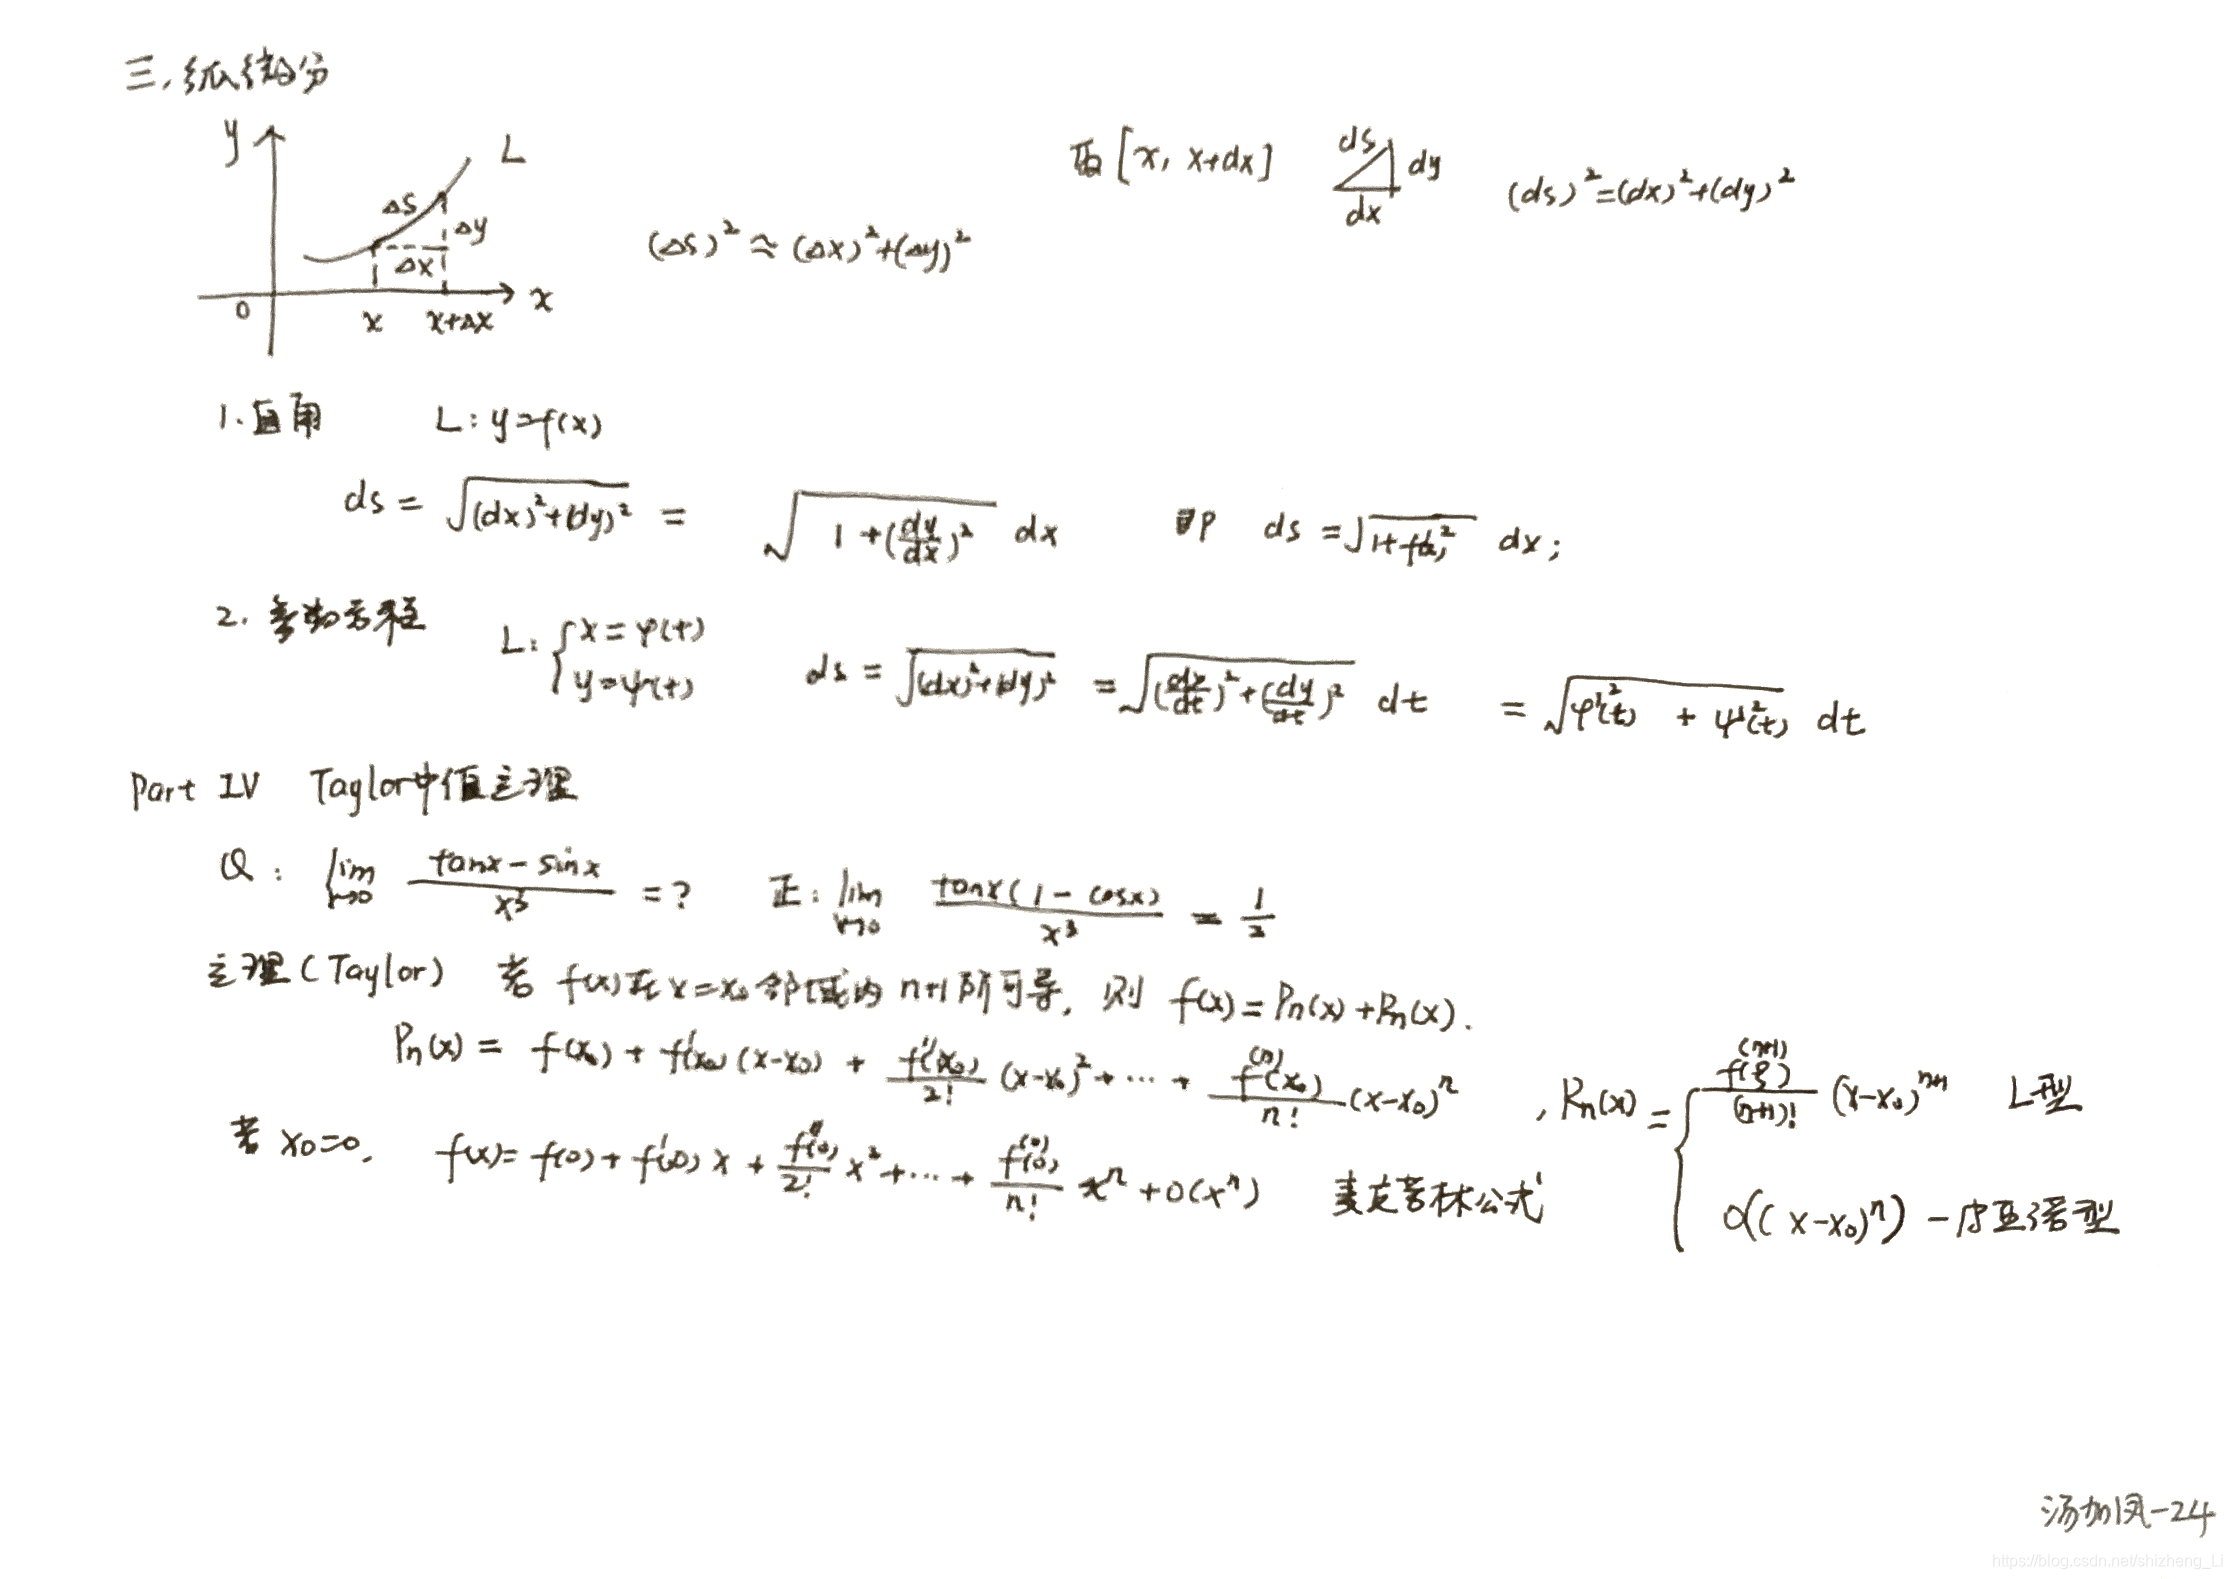 三.弧微分
y
L
Δs
Δy
Δx
0
x
x+Δx
x
(Δs)²≈(Δx)²+(Δy)²
取[x, x+dx]
ds
dy
dx
(ds)²=(dx)²+(dy)²
1.直角 L: y=f(x)
ds = √((dx)²+(dy)²) = √(1+(dy/dx)²) dx 即 ds =√(1+f'(x)²) dx;
2. 参数方程 L: {x=φ(t) y=ψ(t) ds = √((dx)²+(dy)²) = √((dx/dt)²+(dy/dt)²) dt = √(φ'²(t) + ψ'²(t)) dt
Part IV Taylor中值定理
Q: lim x→0 (tanx-sinx)/x³ =? 正: lim x→0 tanx(1-cosx)/x³ = 1/2
定理(Taylor) 若 f(x)在x=x₀邻域内n+1阶可导, 则 f(x)=Pn(x)+Rn(x).
Pn(x) = f(x₀)+f'(x₀)(x-x₀)+ f''(x₀)/2! (x-x₀)²+…+ f⁽ⁿ⁾(x₀)/n! (x-x₀)ⁿ , Rn(x) = { f⁽ⁿ⁺¹⁾(ξ)/(n+1)! (x-x₀)ⁿ⁺¹ L型
o((x-x₀)ⁿ) -皮亚诺型
若 x₀=0, f(x)=f(0)+f'(0)x+ f''(0)/2! x²+…+ f⁽ⁿ⁾(0)/n! xⁿ+o(xⁿ) 麦克劳林公式
汤加凤-24
https://blog.csdn.net/shizheng_Li